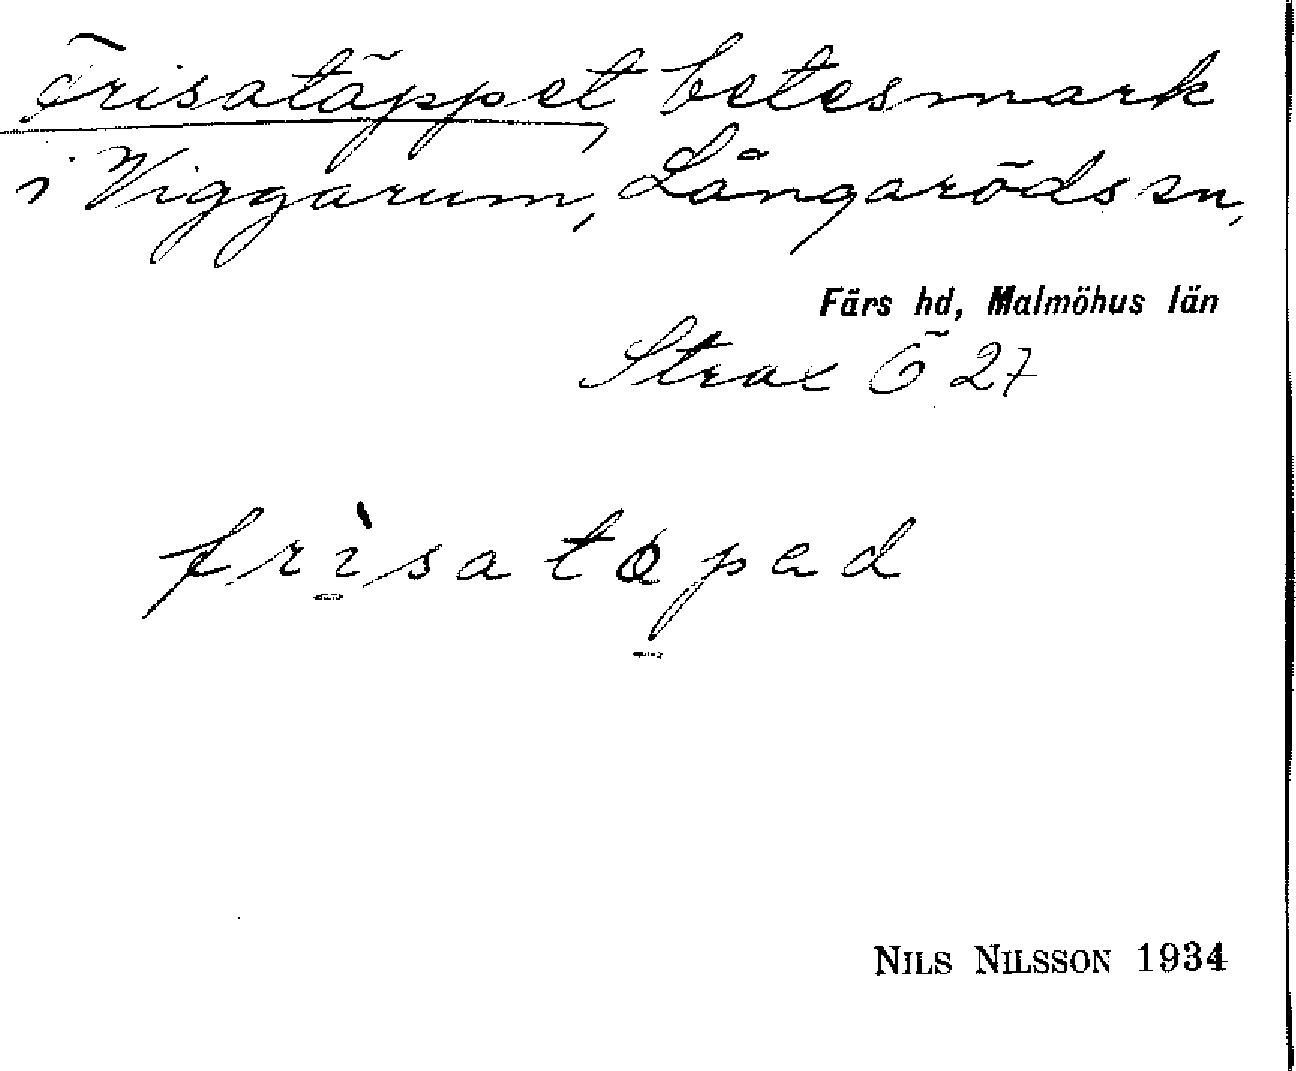 Frisatäppet, betesmark
i Viggarum, Långaröds sn,
Färs hd, Malmöhus län
Strax Ö 27
frìsatøpad
NILS NILSSON 1934